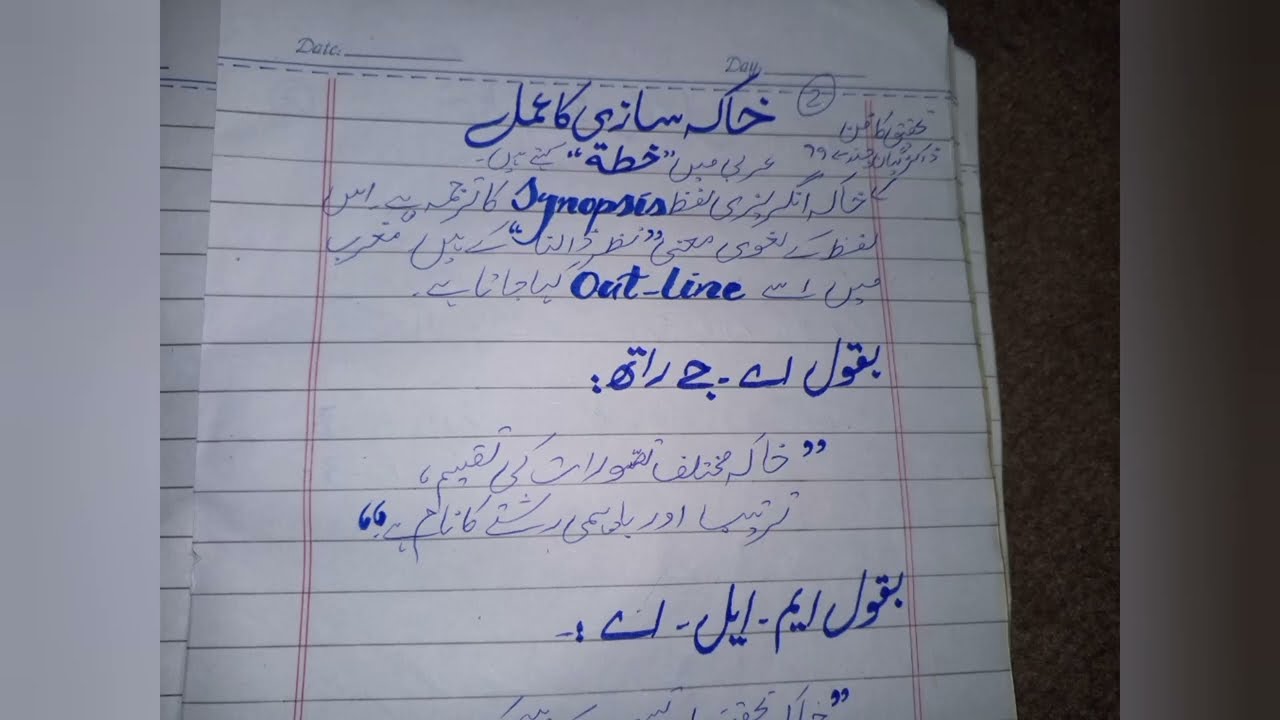 Date:
Day
②
خاکہ سازی کا عمل
تحقیق کا فن
ڈاکٹر گیان چند ص ۹۹
عربی میں "خطة" کہتے ہیں۔
خاکہ انگریزی لفظ Synopsis کا ترجمہ ہے۔ اس
لفظ کے لغوی معنی "نظر ڈالنا" کے ہیں مغرب
میں اسے Out-line کہا جاتا ہے۔
بقول اے۔ جے راتھ:
"خاکہ مختلف تصورات کی تقسیم،
ترتیب اور باہمی رشتے کا نام ہے"
بقول ایم۔ ایل۔ اے :۔
"خاکہ